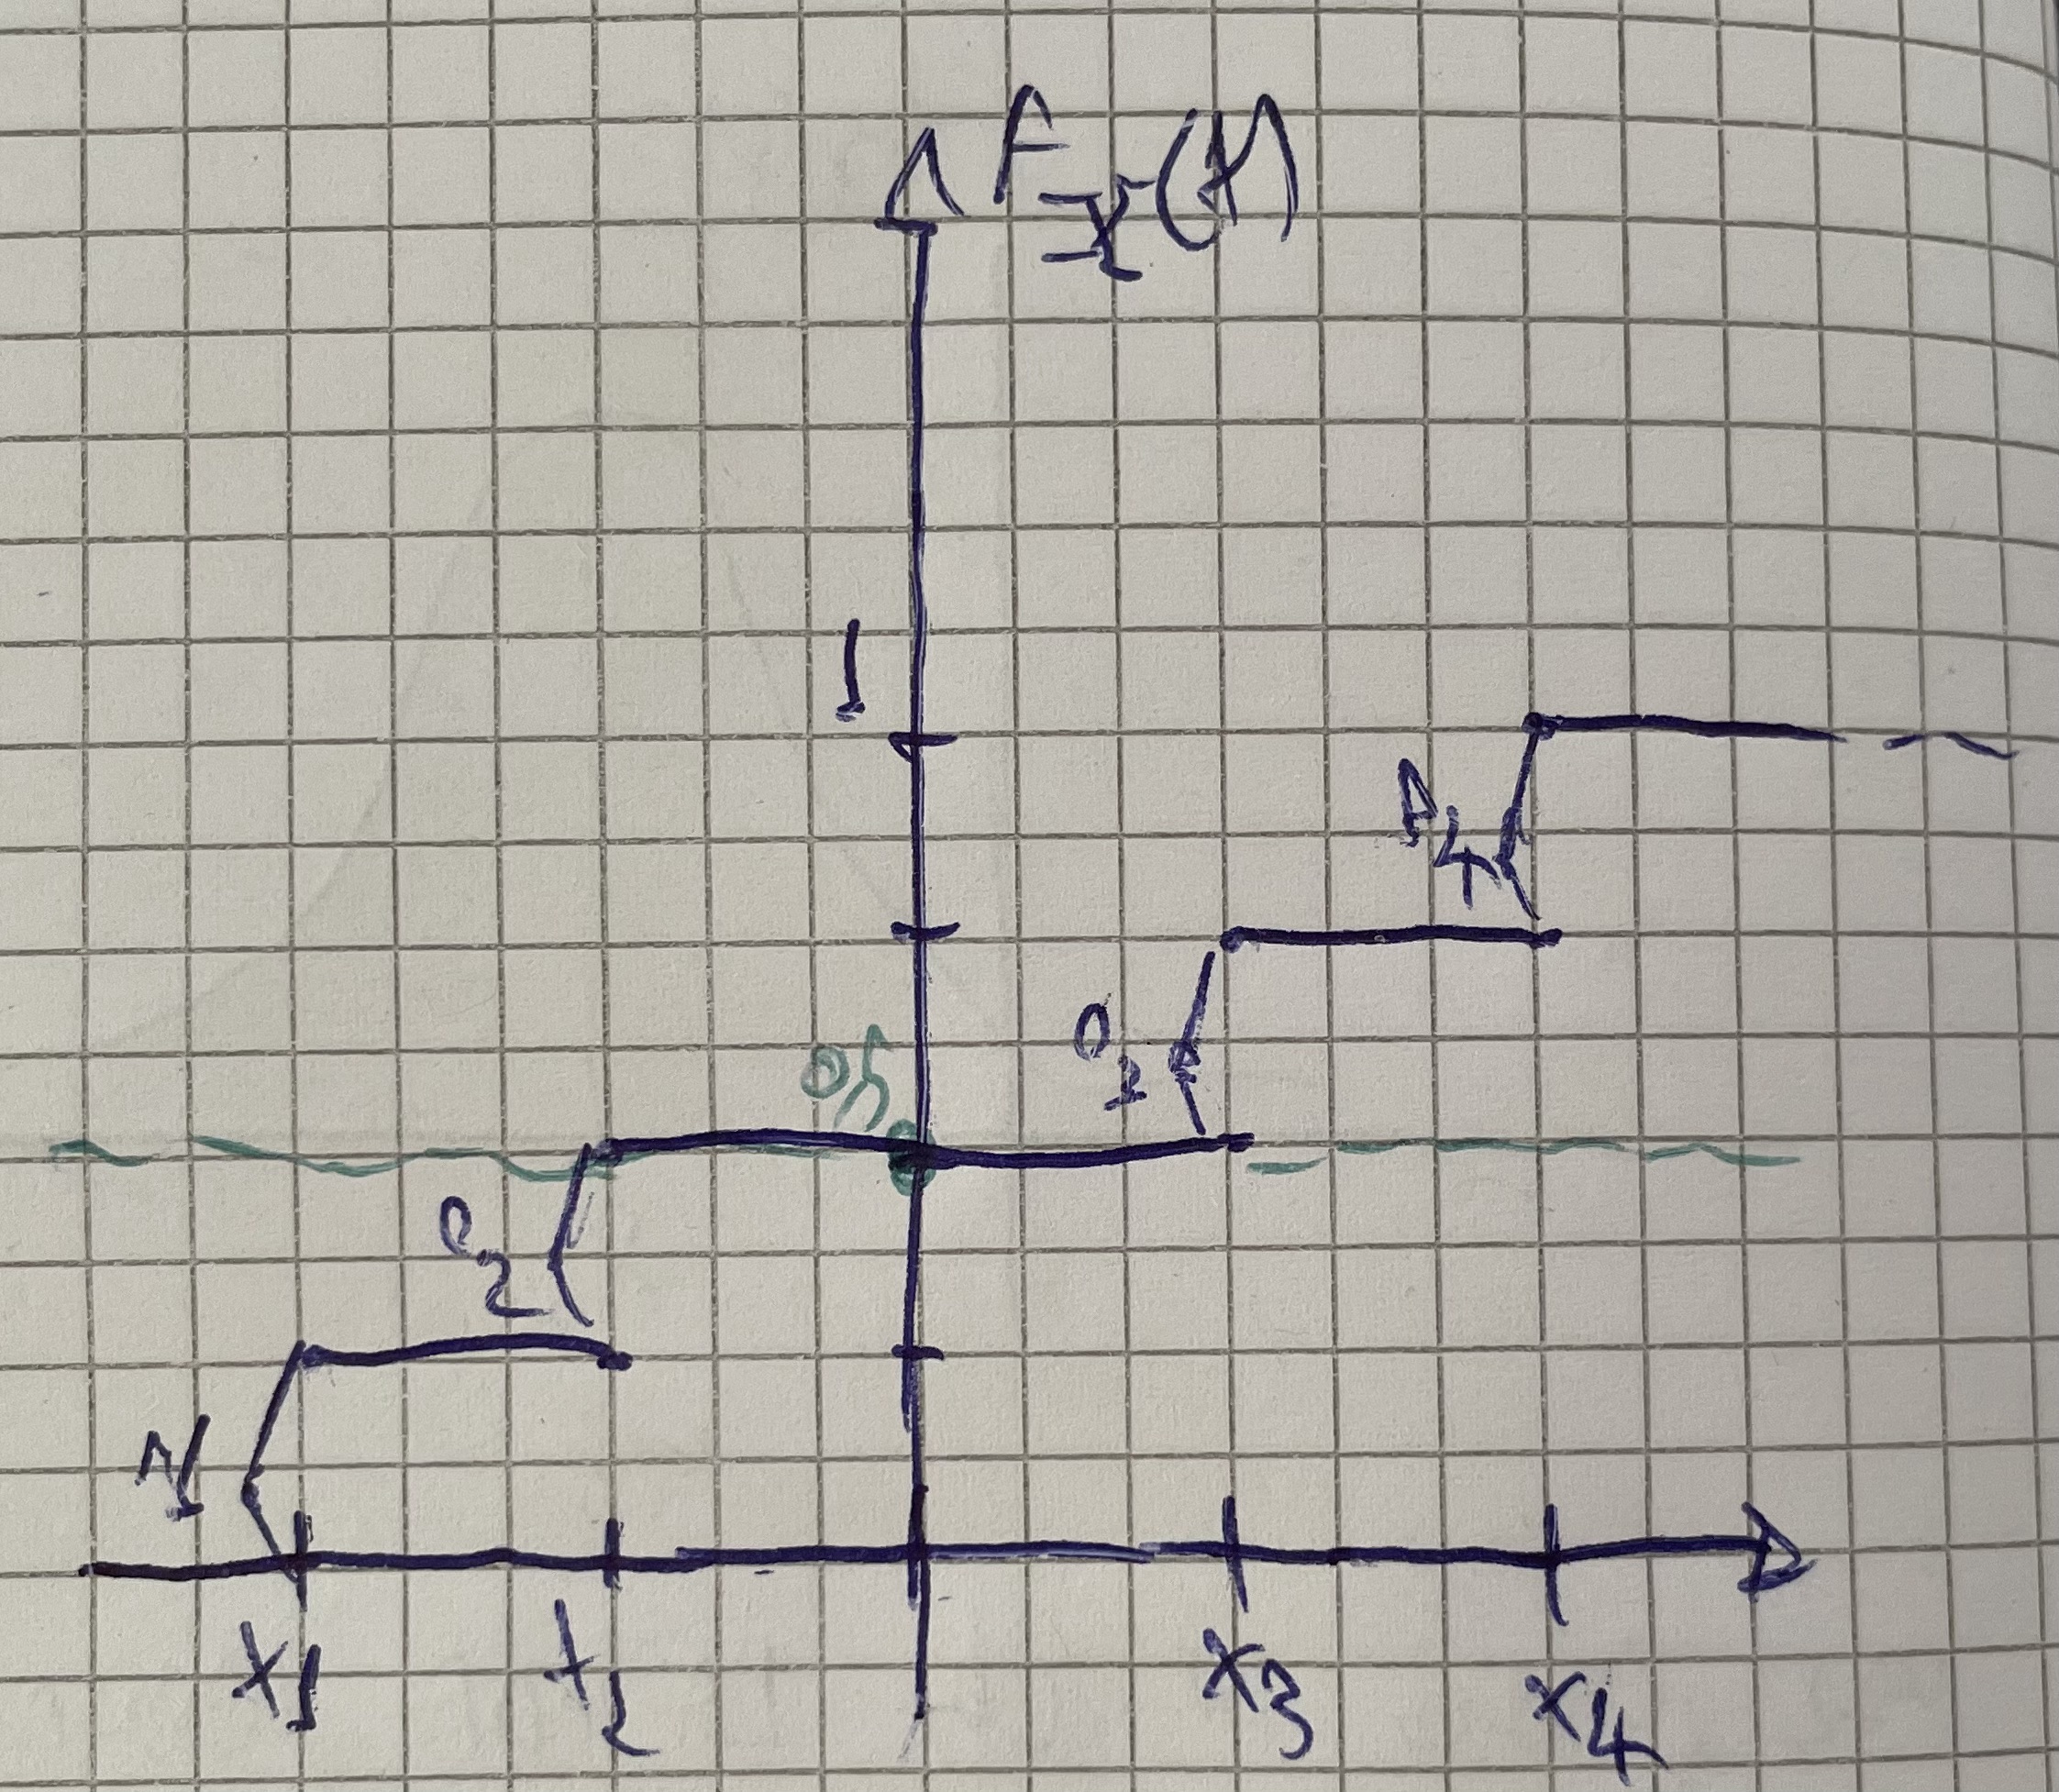 F_X(x)
1
P4
P3
0,5
P2
P1
x1 x2 x3 x4